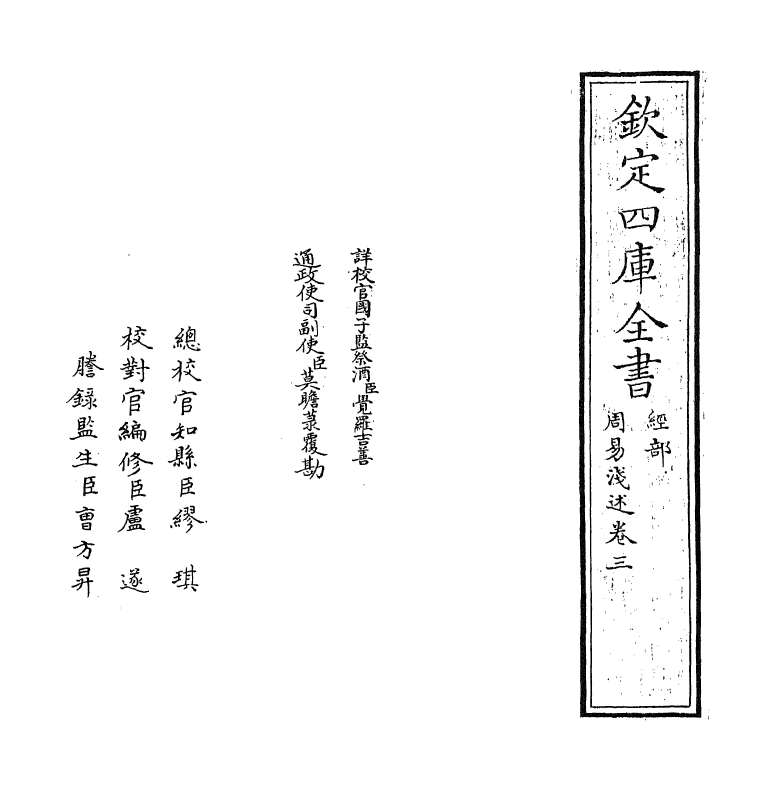 欽定四庫全書
經部
周易淺述卷三
詳校官國子監祭酒臣覺羅吉善
通政使司副使臣莫瞻菉覆勘
總校官知縣臣繆琪
校對官編修臣盧遂
謄錄監生臣曹方昇